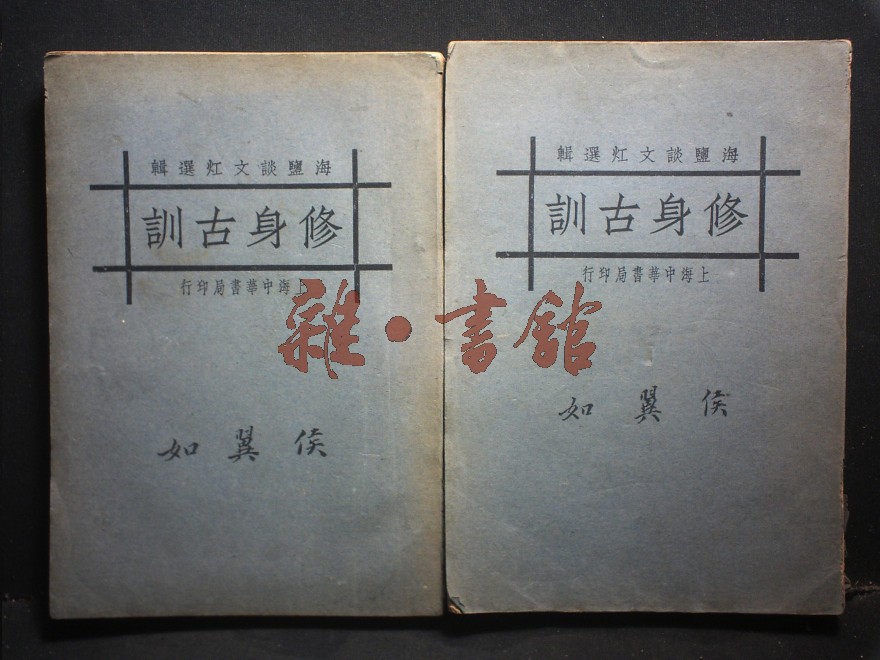 海鹽談文灴選輯
修身古訓
上海中華書局印行
侯翼如
海鹽談文灴選輯
修身古訓
上海中華書局印行
侯翼如
雜·書舘